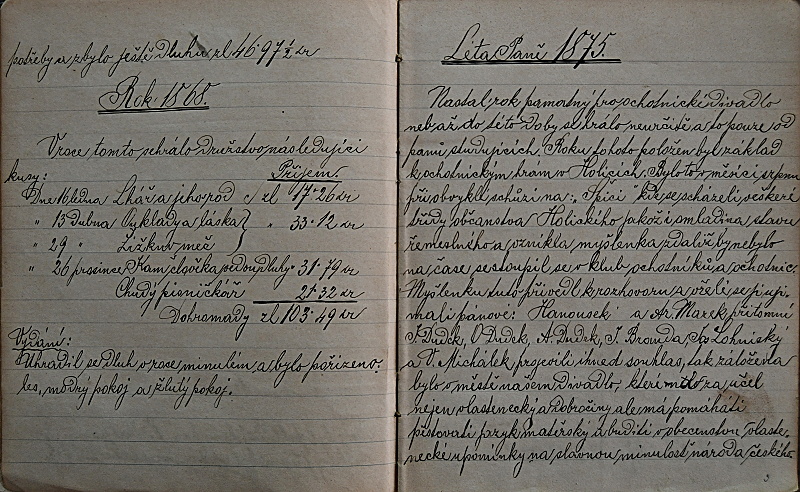 potřeby a zbylo ještě dluhu zl 46·97½ kr
Rok 1868.
V roce tomto sehrálo družstvo následující
kusy:
Příjem.
Dne 16 ledna Lhář a jeho rod zl 17·26 kr
" 13 dubna Výklady a láska " 33·12 kr
" 29 " Žižkův meč
" 26 prosince Kam člověka vedou dluhy 31·79 kr
Chudý písničkář 21·32 kr
Dohromady zl 103·49 kr
Vydání:
Uhradil se dluh v roce minulém a bylo pořízeno:
les, modrý pokoj a žlutý pokoj.
Léta Páně 1875.
Nastal rok památný pro ochotnické divadlo
neb až do této doby se hrálo neurčitě a to pouze od
pánů studujících. Roku tohoto položen byl základ
k ochotnickým hram v Holicích. Bylo to v měsíci srpnu
při obvyklé schůzi na: "Špici" kde se scházeli veškeré
třídy občanstva Holického jakož i omladina stavu
řemeslného a vznikla myšlenka zdali by nebylo
na čase sestoupil se v klub ochotníků a ochotnic.
Myšlenku tuto přivedl k rozhovoru a vřelé se jí ujmali pánové: Hanousek a Dr. Marek, přítomni
F. Dudek, O. Dudek, A. Dudek, J. Brouda, Lohniský
a V. Michálek projevili ihned souhlas, tak založeno
bylo v městě našem divadlo, které mělo za účel
nejen vlastenecký a dobročiny ale má pomáhati
pěstovati jazyk mateřský a buditi v obecenstvu vlastenecké
upomínky na slavnou minulost národa českého
3